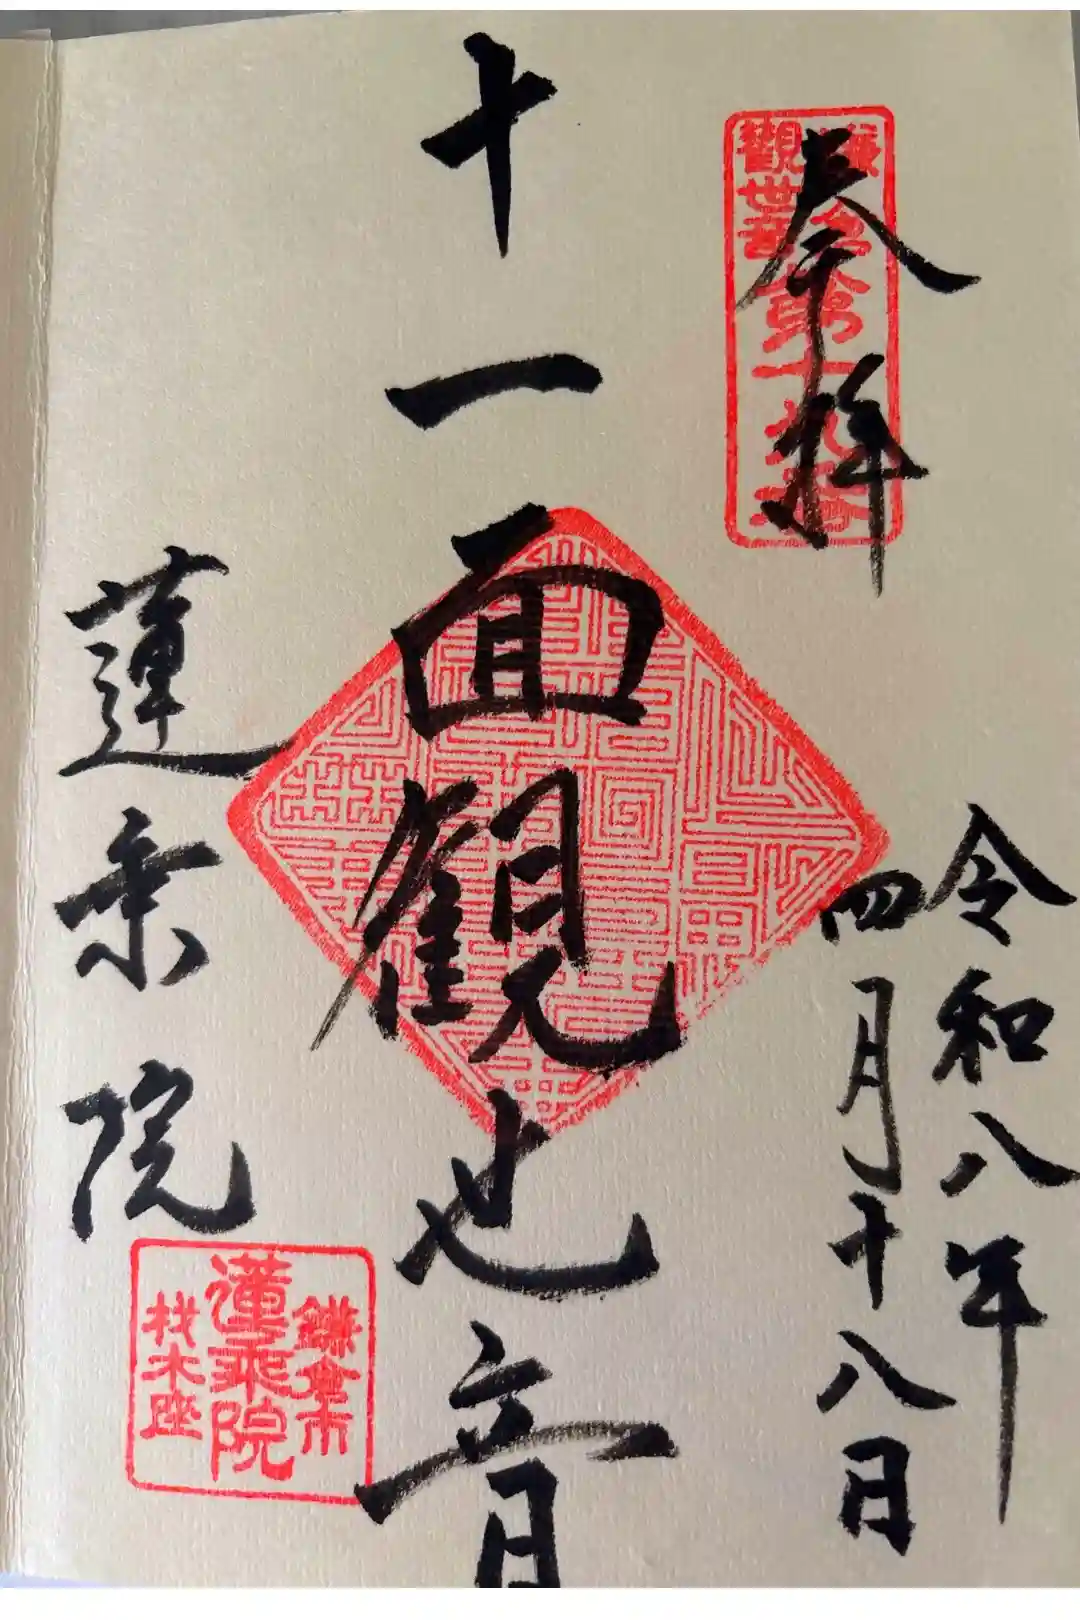 奉拝
鎌倉第十九番
観世音
令和八年
四月十八日
十一面観世音
蓮乗院
鎌倉市
蓮乗院
材木座